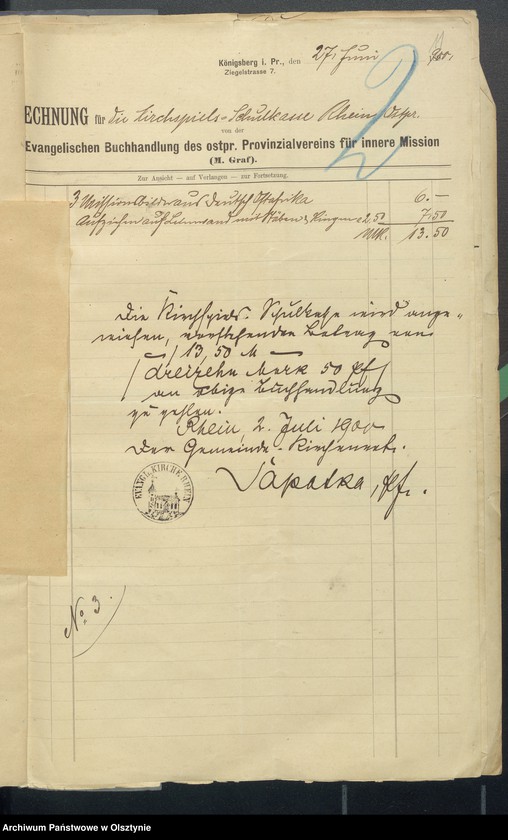 Königsberg i. Pr., den 27. Juni 1900.
Ziegelstrasse 7.
2
ECHNUNG für die Kirchspiels-Schulkasse Rhein Ostpr.
von der
Evangelischen Buchhandlung des ostpr. Provinzialvereins für innere Mission
(M. Graf).
Zur Ansicht — auf Verlangen — zur Fortsetzung.
3 Missionsbilder aus Deutsch Ostafrika 6.—
Aufziehen auf Leinwand mit Stäben & Ringen a 2,50 7.50
Mk. 13.50
Die Kirchspiels-Schulkasse wird ange-
wiesen, vorstehenden Betrag von
13,50 M
dreizehn Mark 50 Pf
an obige Buchhandlung
zu zahlen.
Rhein 2. Juli 1900
Der Gemeinde-Kirchenrat.
EVANGL. KIRCHE RHEIN
Czapatka, Pf.
No. 3.
Archiwum Państwowe w Olsztynie